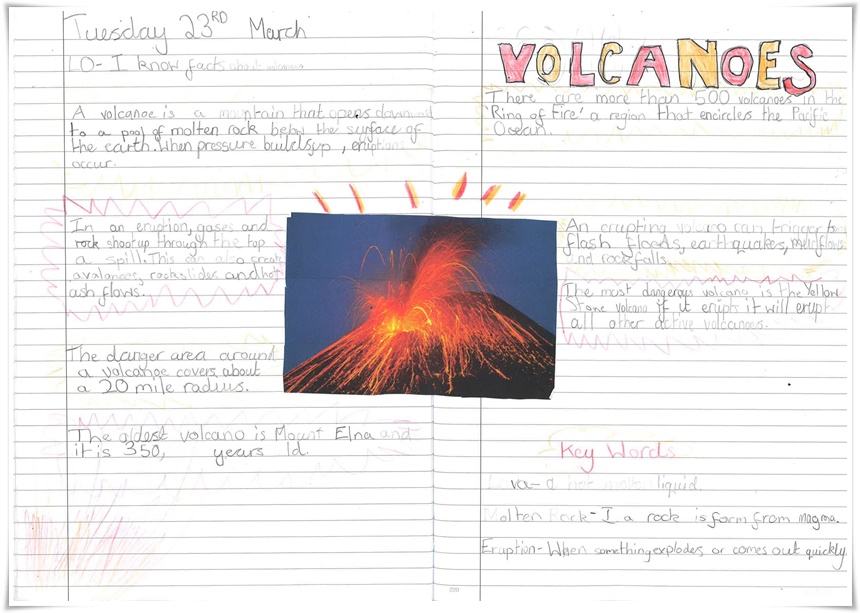 Tuesday 23RD March
LO- I know facts about volcanoes
A volcanoe is a mountain that opens downward
to a pool of molten rock below the surface of
the earth. When pressure buildsup, eruptions
occur.
In an eruption, gases and
rock shoot up through the top
a spill. This can also create
avalances, rockslides and hot
ash flows.
The danger area around
a volcanoe covers about
a 20 mile radius.
The oldest volcano is Mount Elna and
it is 350, years ld.
VOLCANOES
There are more than 500 volcanoes in the
'Ring of Fire' a region that encircles the Pacific
Ocean.
An erupting volcano can trigger
flash floods, earthquakes, mudflows
and rockfalls.
The most dangerous volcano is the Yellow
Stone volcano if it erupts it will erupt
all other active volcanoes.
Key Words
Lava- a hot molten liquid.
Molten Rock- I a rock is form from magma.
Eruption- When something explodes or comes out quickly